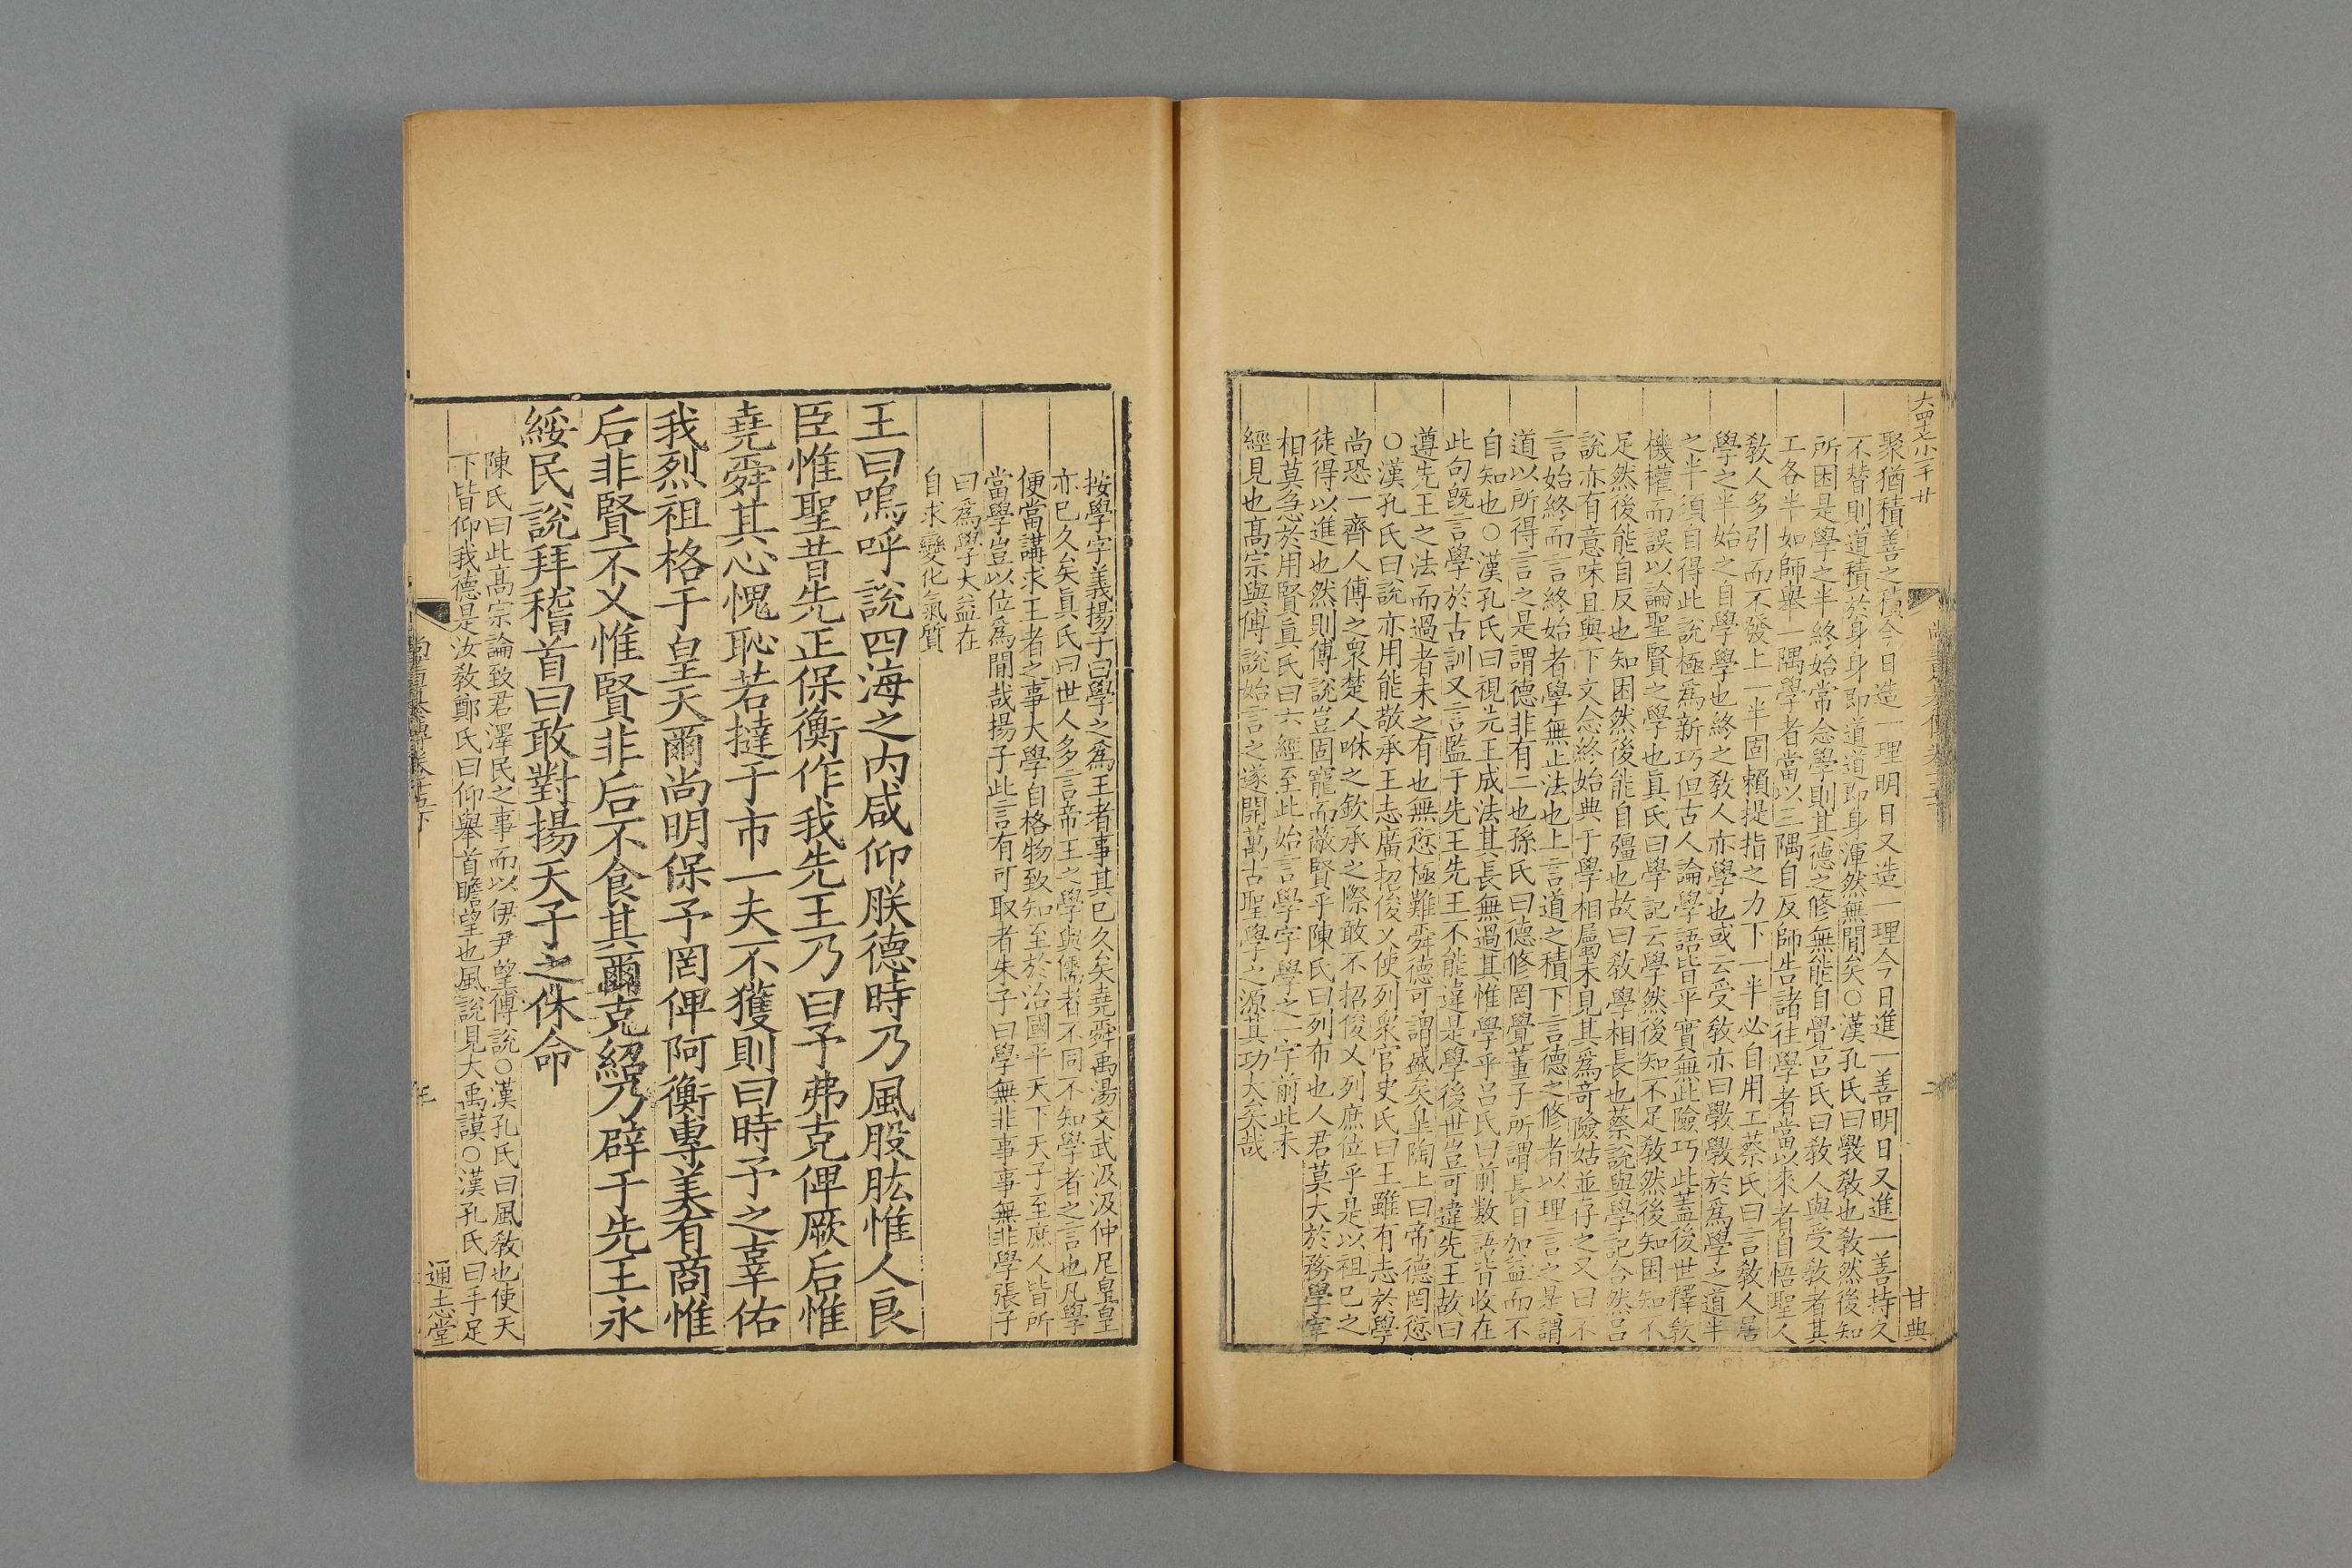 聚猶積善之積今日造一理明日又造一理今日進一善明日又進一善持久
不替則道積於身身即道道即身渾然無間矣○漢孔氏曰斆敎也敎然後知
所困是學之半終始常念學則其德之修無能自覺呂氏曰敎人與受敎者其
工各半如師舉一隅學者當以三隅自反師告諸往學者當以來者自悟聖人
敎人多引而不發上一半固賴提指之力下一半必自用工蔡氏曰言敎人居
學之半始之自學學也終之敎人亦學也或云受敎亦曰斆斆於爲學之道半
之半須自得此說極爲新巧但古人論學語皆平實無此險巧此蓋後世釋敎
機權而誤以論聖賢之學也眞氏曰學記云學然後知不足敎然後知困知不
足然後能自反也知困然後能自彊也故曰敎學相長也蔡說與學記合然呂
說亦有意味且與下文念終始典于學相屬未見其爲奇險姑並存之又曰不
言始終而言終始者學無止法也上言道之積下言德之修者以理言之是謂
道以所得言之是謂德非有二也孫氏曰德修罔覺董子所謂長日加益而不
自知也○漢孔氏曰視先王成法其長無過其惟學乎呂氏曰前數語皆收在
此句旣言學於古訓又言監于先王先王不能違是學後世豈可違先王故曰
遵先王之法而過者未之有也無愆極難舜德可謂盛矣臯陶上曰帝德罔愆
○漢孔氏曰說亦用能敬承王志廣招俊乂使列衆官史氏曰王雖有志於學
尚恐一齊人傅之衆楚人咻之欽承之際敢不招俊乂列庶位乎是以祖已之
徒得以進也然則傅說豈固寵而蔽賢乎陳氏曰列布也人君莫大於務學宰
相莫急於用賢眞氏曰六經至此始言學字學之一字前此未
經見也高宗與傅說始言之遂開萬古聖學之源其功大矣哉
甘典
按學字義揚子曰學之爲王者事其已久矣堯舜禹湯文武汲汲仲尼皇皇
亦已久矣眞氏曰世人多言帝王之學與儒者不同不知學者之言也凡學
便當講求王者之事大學自格物致知至於治國平天下天子至庶人皆所
當學豈以位爲間哉揚子此言有可取者朱子曰學無非事事無非學張子
曰爲學大益在
自求變化氣質
王曰嗚呼說四海之内咸仰朕德時乃風股肱惟人良
臣惟聖昔先正保衡作我先王乃曰予弗克俾厥后惟
堯舜其心愧恥若撻于市一夫不獲則曰時予之辜佑
我烈祖格于皇天爾尚明保予罔俾阿衡專美有商惟
后非賢不乂惟賢非后不食其爾克紹乃辟于先王永
綏民說拜稽首曰敢對揚天子之休命
陳氏曰此高宗論致君澤民之事而以伊尹望傅說○漢孔氏曰風敎也使天
下皆仰我德是汝敎鄭氏曰仰舉首瞻望也風說見大禹謨○漢孔氏曰手足
通志堂